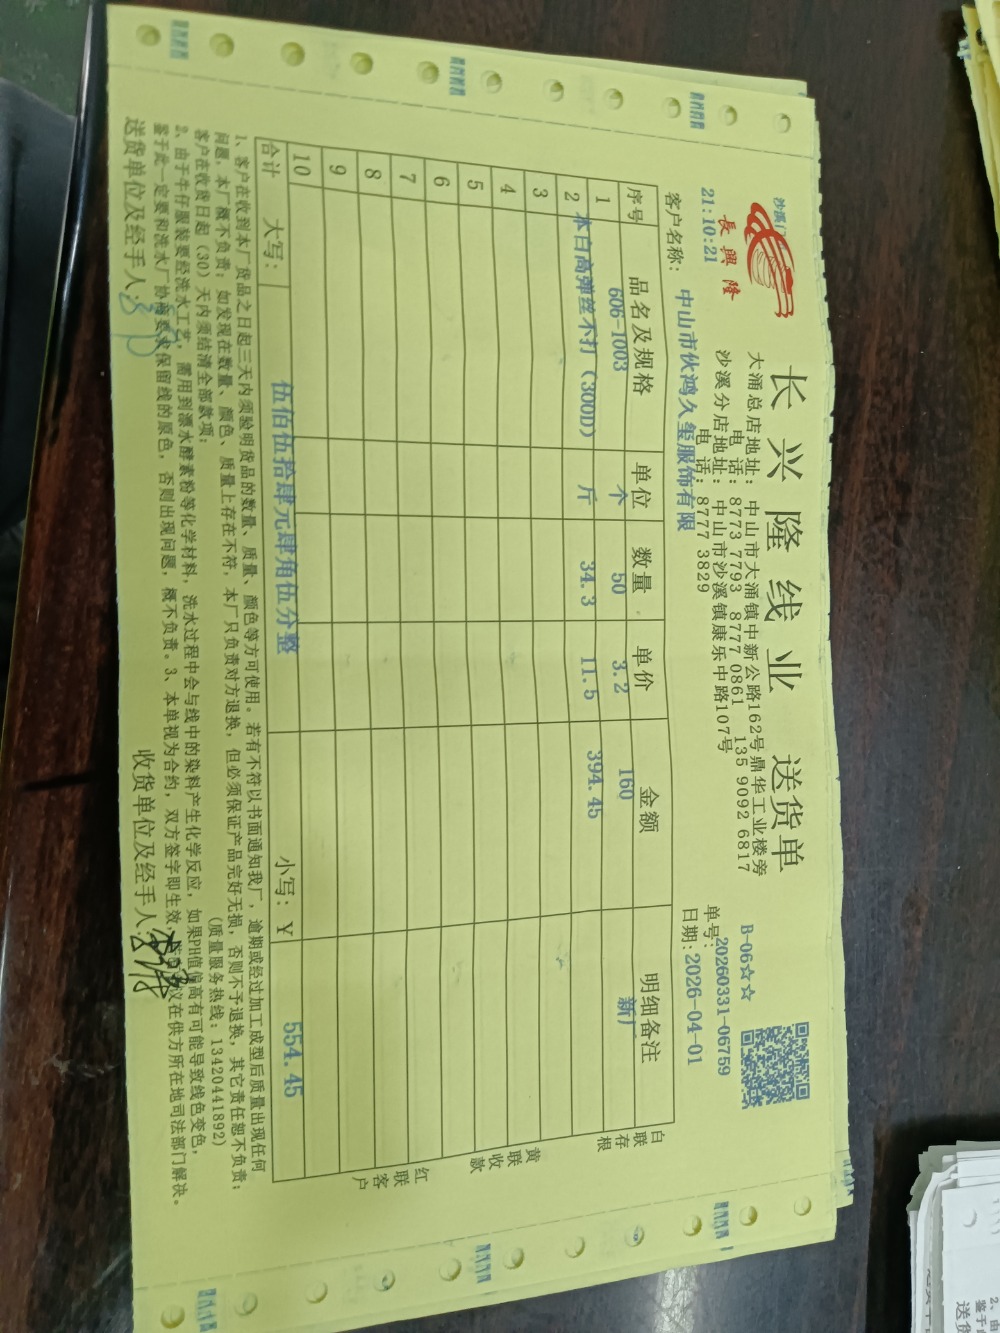 长兴隆线业 送货单
沙溪门
長興隆
大涌总店地址: 中山市大涌镇中新公路162号鼎华工业楼旁
电 话: 8773 7793 8777 0861 135 9092 6817
沙溪分店地址: 中山市沙溪镇康乐中路107号
电 话: 8777 3829
21:10:21
B-06☆☆
单号: 20260331-06759
客户名称: 中山市伙鸿久玺服饰有限
日期: 2026-04-01
序号 品名及规格 单位 数量 单价 金额 明细备注
1 606-1003 个 50 3.2 160 新厂
2 本白高弹丝不打(300D) 斤 34.3 11.5 394.45
3
4
5
6
7
8
9
10
合计 大写: 伍佰伍拾肆元肆角伍分整 小写: ¥ 554.45
白联存根
黄联收款
红联客户
1、客户在收到本厂货品之日起三天内须验明货品的数量、质量、颜色等方可使用。若有不符以书面通知我厂,逾期或经过加工成型后质量出现任何
问题,本厂概不负责;如发现在数量、颜色、质量上存在不符,本厂只负责对方退换,但必须保证产品完好无损,否则不予退换,其它责任恕不负责;
客户在收货日起(30)天内须结清全部款项; (质量服务热线: 13420441892)
2、由于牛仔服装要经洗水工艺,需用到漂水酵素粉等化学材料,洗水过程中会与线中的染料产生化学反应,如果PH值偏高有可能导致线色变色,
鉴于此一定要和洗水厂协商要求保留线的原色,否则出现问题,概不负责。3、本单视为合约,双方签字即生效,议在供方所在地司法部门解决。
送货单位及经手人: 收货单位及经手人:
2、由
鉴于
送货